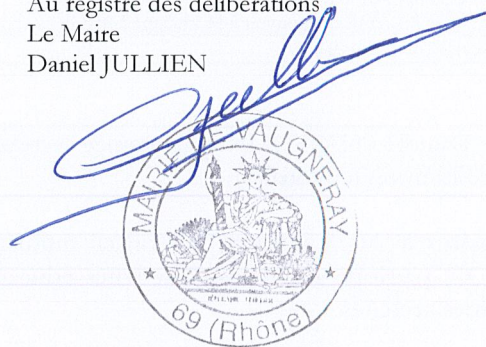 Au registre des délibérations
Le Maire
Daniel JULLIEN
MAIRIE DE VAUGNERAY
69 (Rhône)